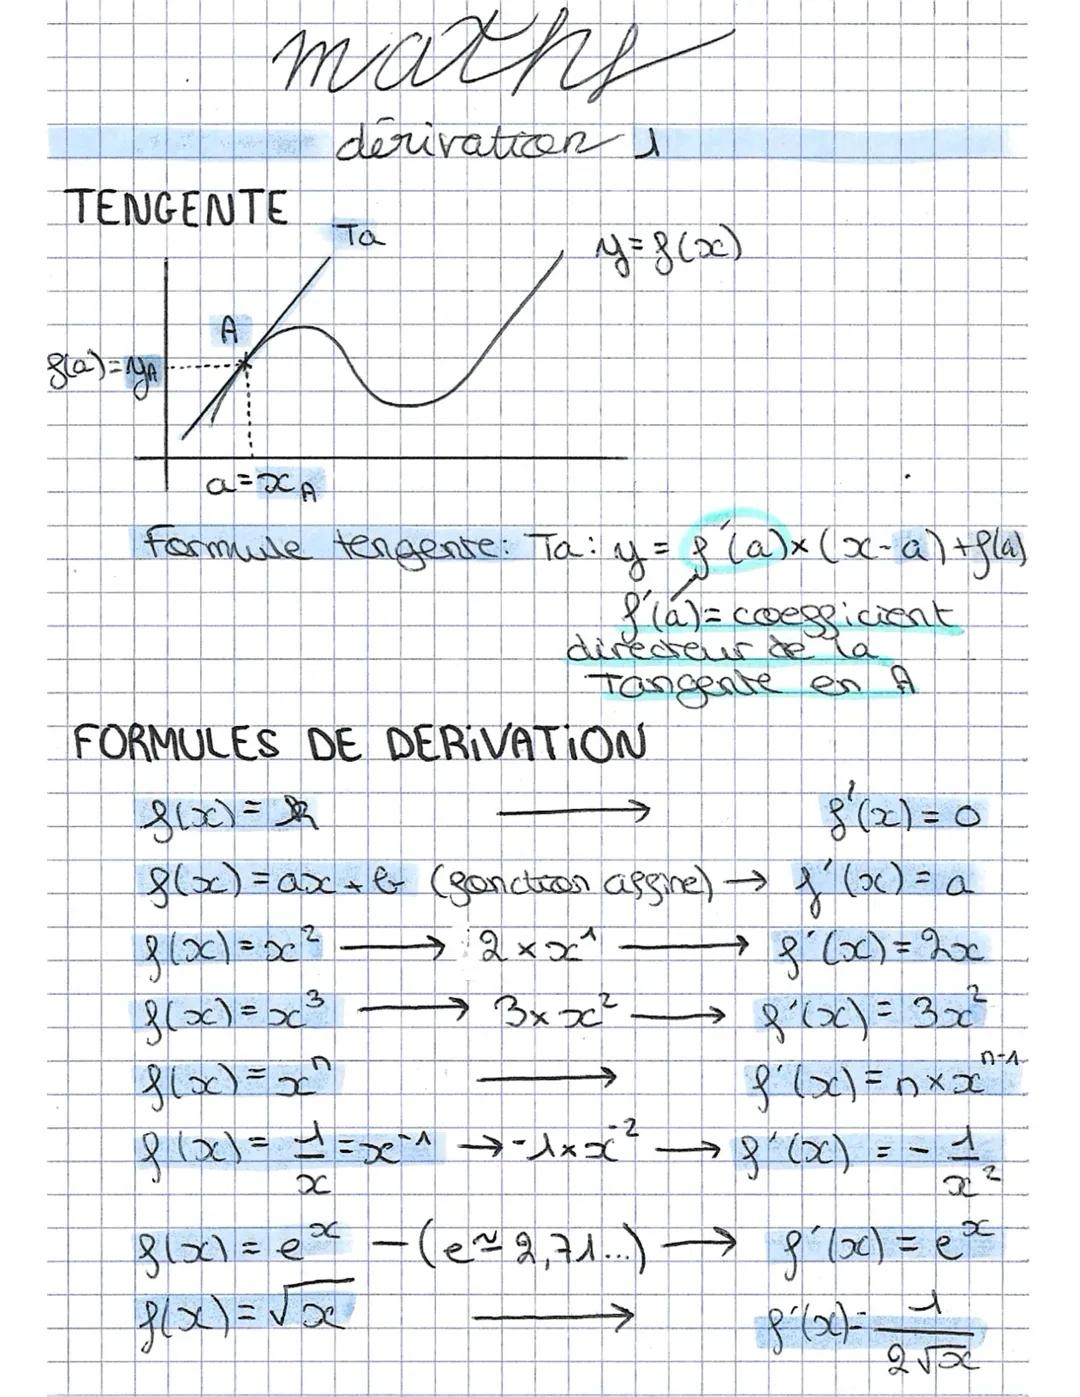 maths
dérivation 1
TENGENTE
Ta
y=f(x)
A
f(a)=yA
a=xA
Formule tengente: Ta: y = f'(a)×(x-a)+f(a)
f'(a)= coefficient
directeur de la
tangente en A
FORMULES DE DERIVATION
f(x)= k → f'(x)=0
f(x)=ax+b (fonction affine) → f'(x)=a
f(x)=x² → 2×x¹ → f'(x)=2x
f(x)=x³ → 3×x² → f'(x)=3x²
f(x)=xⁿ → f'(x)=n×xⁿ⁻¹
f(x)= 1/x =x⁻¹ → -1×x⁻² → f'(x) = - 1/x²
f(x)=eˣ -(e≃2,71...) → f'(x)=eˣ
f(x)=√x → f'(x)= 1/2√x